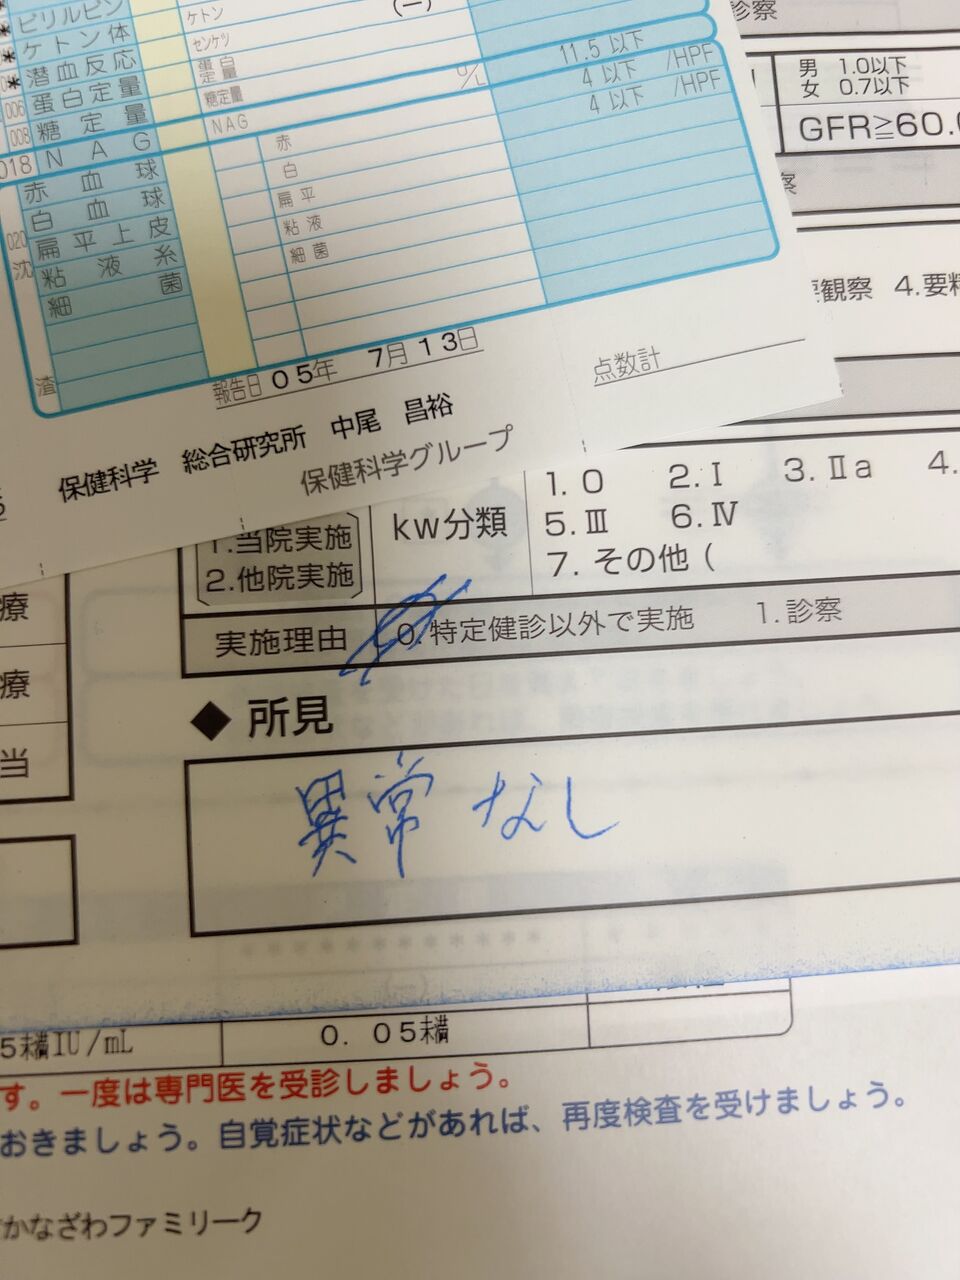 ビリルビン
ケトン
(－)
診察
* ケトン体
センケツ
* 潜血反応
蛋白定量
11.5 以下
006 蛋白定量
糖定量
g/L
4 以下 /HPF
008 糖定量
NAG
4 以下 /HPF
018 NAG
男 1.0以下
女 0.7以下
GFR≧60.0
赤血球
赤
白血球
白
020 扁平上皮
扁平
沈
粘液糸
粘液
細菌
細菌
渣
察
要観察 4.要精
報告日 05年 7月 13日
点数計
保健科学 総合研究所 中尾 昌裕
保健科学グループ
1.当院実施
2.他院実施
kw分類
1. 0 2. Ⅰ 3. Ⅱa 4.
5. Ⅲ 6. Ⅳ
7. その他 (
療
実施理由
0. 特定健診以外で実施 1. 診察
療
◆ 所見
当
異常なし
5未満 IU/mL
0.05未満
す。一度は専門医を受診しましょう。
おきましょう。自覚症状などがあれば、再度検査を受けましょう。
かなざわファミリーク